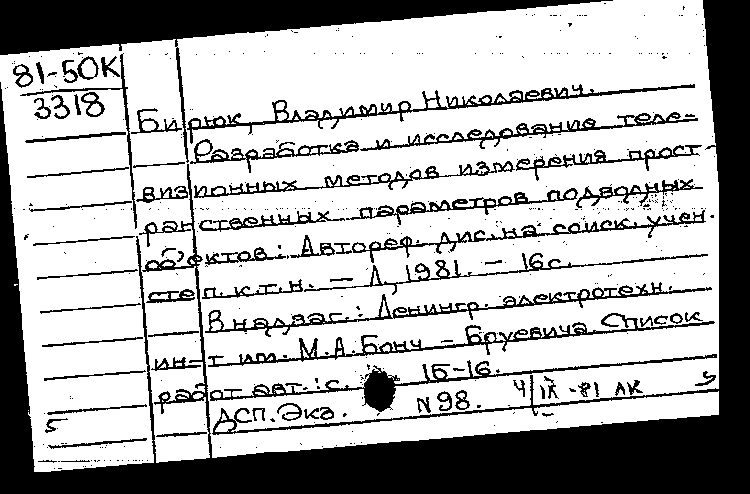 81-5ОК
3318
Бирюк, Владимир Николаевич.
Разработка и исследование теле-
визионных методов измерения прост-
ранственных параметров подводных
объектов: Автореф. дис. на соиск. учен.
степ. к.т.н. – Л., 1981. – 16с.
В надзаг.: Ленингр. электротехн.
ин-т им. М.А.Бонч-Бруевича. Список
работ авт.: с. 15-16.
ДСП. Экз. N98. 4/IX-81 АК
5